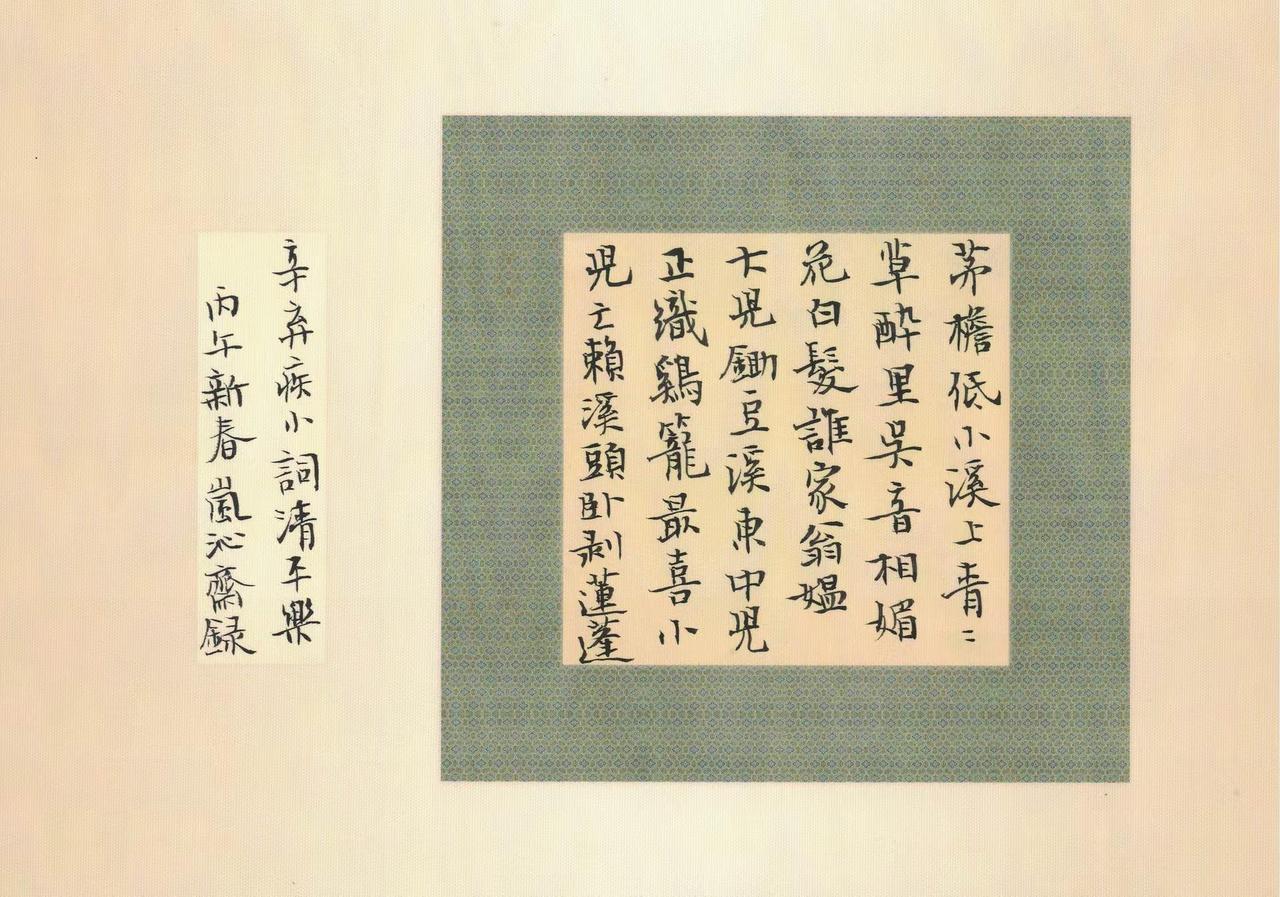 茅檐低小溪上青〻
草醉里吴音相媚
花白髮誰家翁媪
大児鋤豆溪東中児
正織鷄籠最喜小
児亡賴溪頭卧剥蓮蓬
辛弃疾小詞清平樂
丙午新春嵐沁齋録